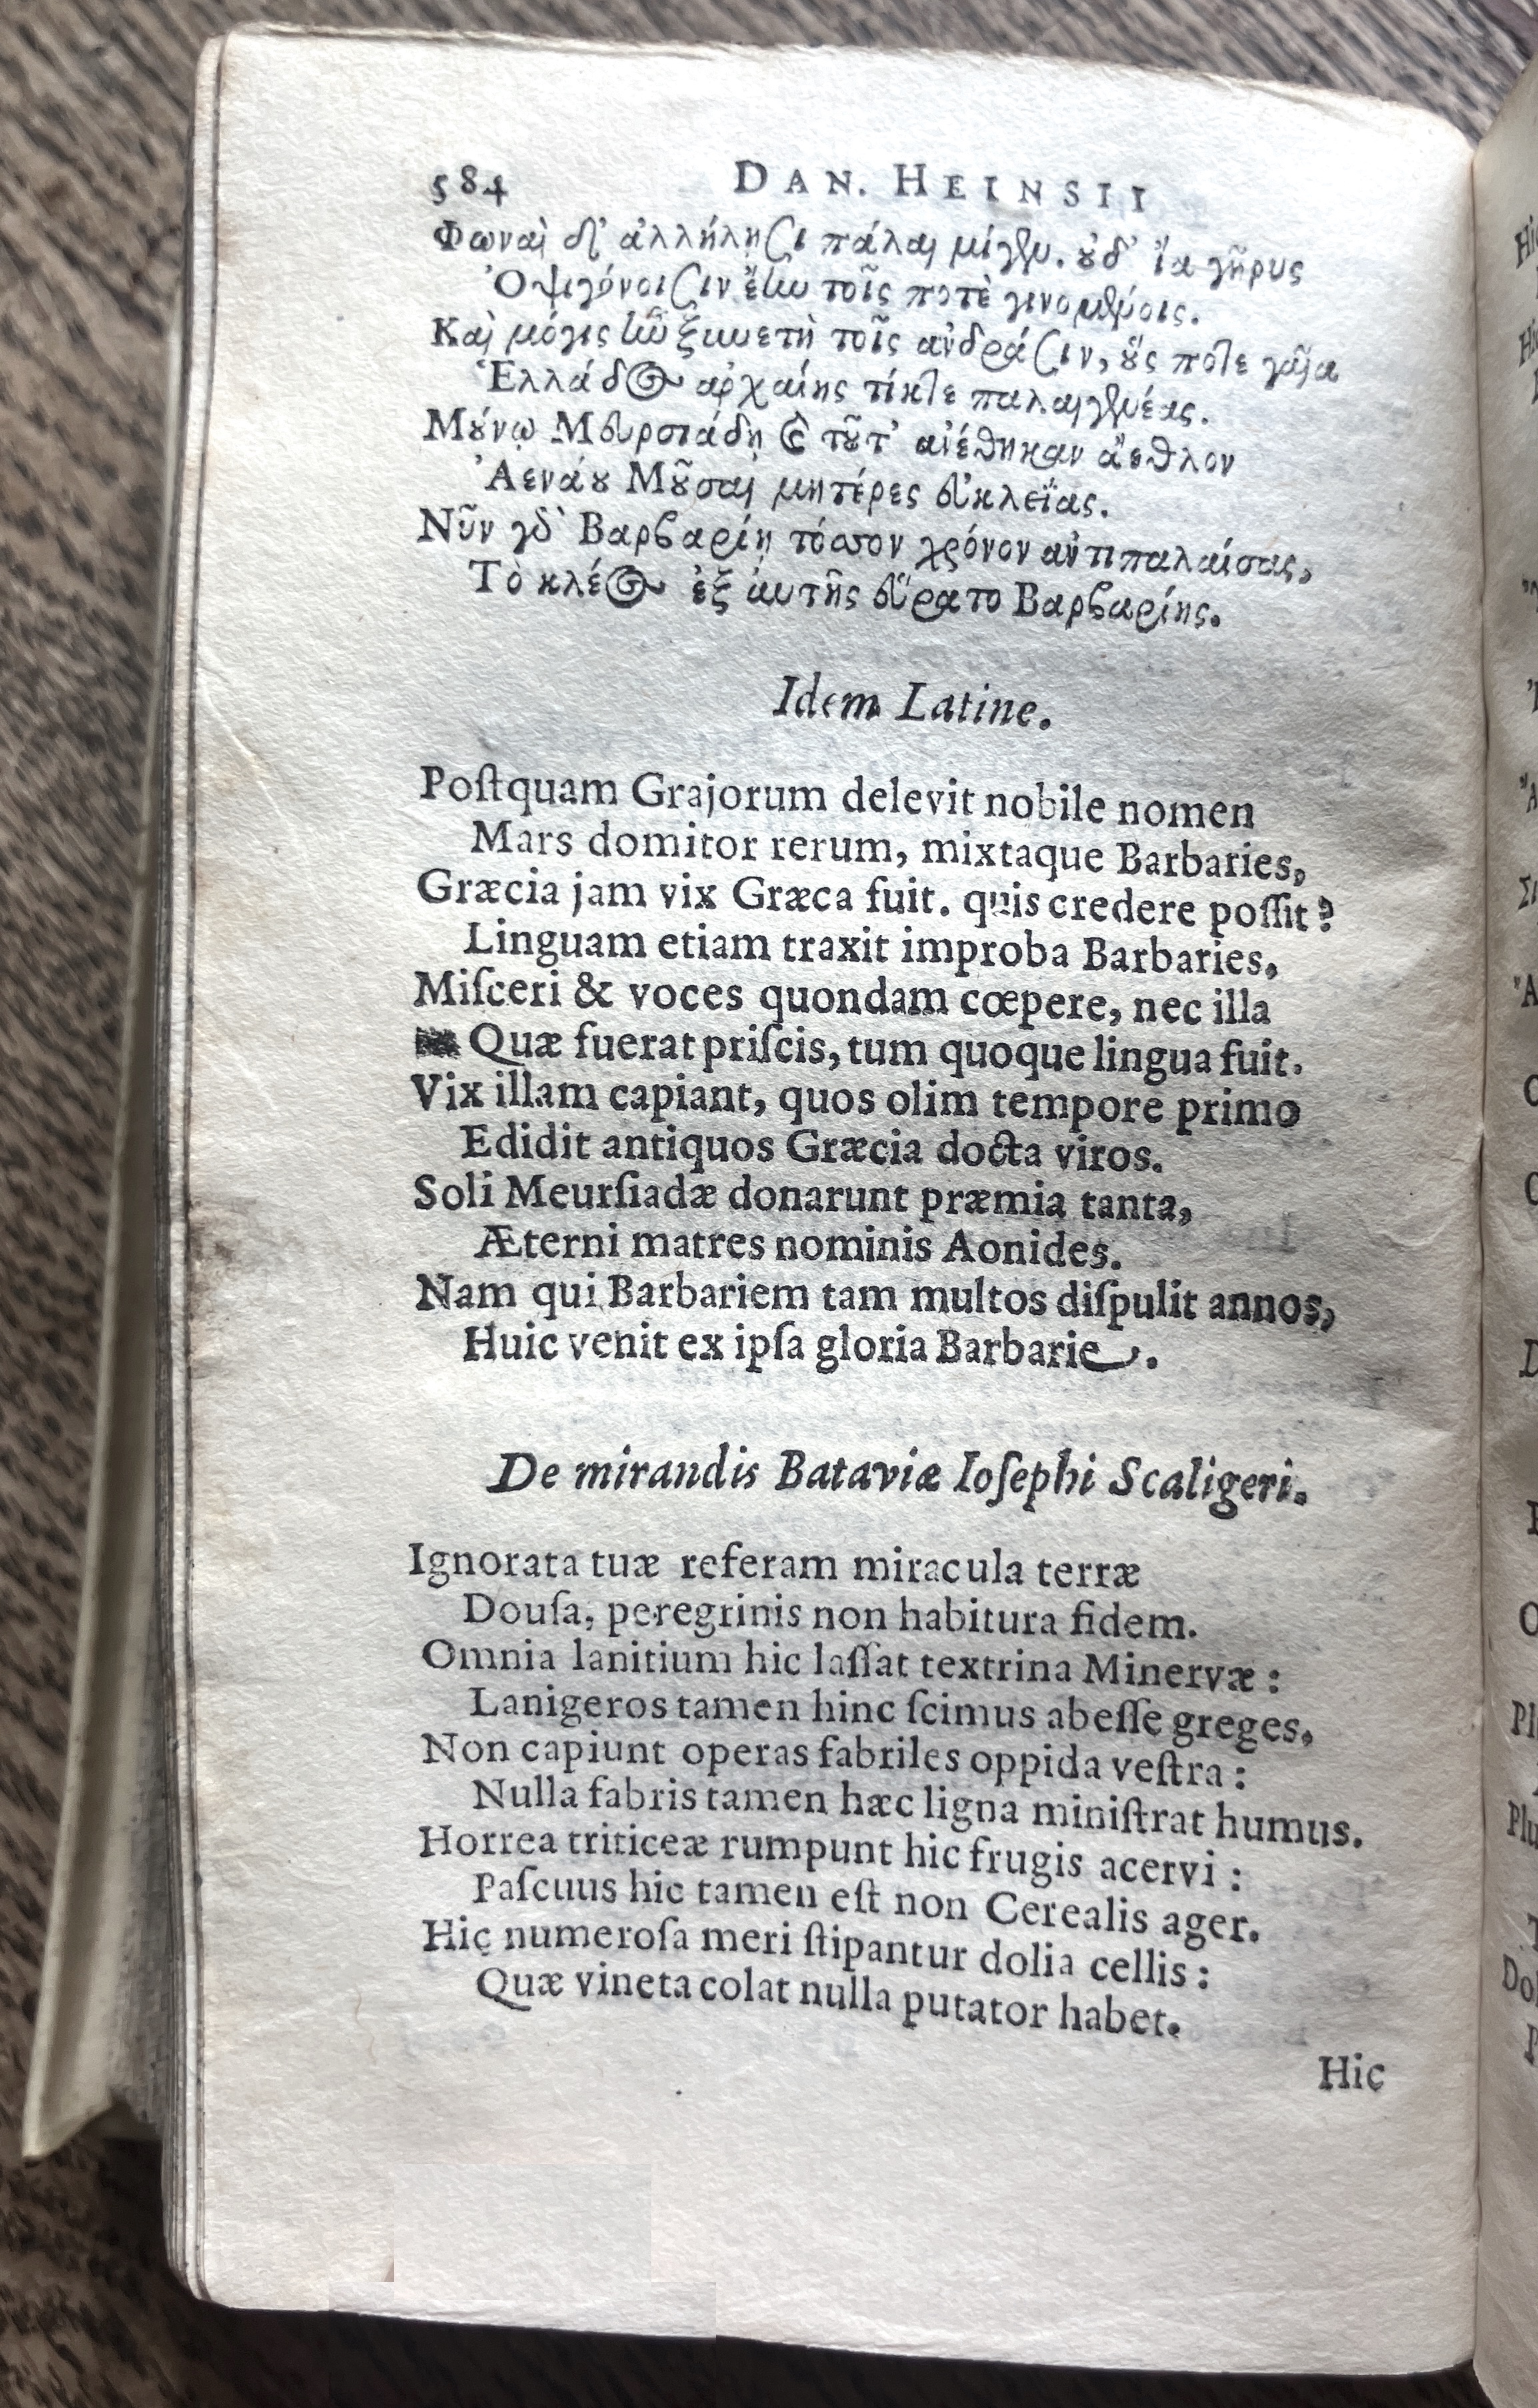 584 DAN. HEINSII
Φωναὶ δ' ἀλλήλησι πάλαι μίγεν. οὐδ' ἴα γῆρυς
Ὀψιγόνοισιν ἔην τοῖς ποτὲ γινομένοις.
Καὶ μόγις ἦν ξυνετὴ τοῖς ἀνδράσιν, οὕς ποτε γαῖα
Ἑλλάδος ἀρχαίης τίκτε παλαιγενέας.
Μούνῳ Μευρσιάδῃ καὶ τοῦτ' ἀνέθηκαν ἄεθλον
Ἀενάου Μοῦσαι μητέρες εὐκλεΐας.
Νῦν γὰρ Βαρβαρίῃ τόσσον χρόνον ἀντιπαλαίσας,
Τὸ κλέος ἐξ αυτῆς εὕρατο Βαρβαρίης.
Idem Latine.
Poſtquam Grajorum delevit nobile nomen
Mars domitor rerum, mixtaque Barbaries,
Græcia jam vix Græca fuit. quis credere poſſit?
Linguam etiam traxit improba Barbaries,
Miſceri & voces quondam cœpere, nec illa
Quæ fuerat priſcis, tum quoque lingua fuit.
Vix illam capiant, quos olim tempore primo
Edidit antiquos Græcia docta viros.
Soli Meurſiadæ donarunt præmia tanta,
Æterni matres nominis Aonides.
Nam qui Barbariem tam multos diſpulit annos,
Huic venit ex ipſa gloria Barbarie.
De mirandis Bataviæ Ioſephi Scaligeri.
Ignorata tuæ referam miracula terræ
Douſa, peregrinis non habitura fidem.
Omnia lanitium hic laſſat textrina Minervæ:
Lanigeros tamen hinc ſcimus abeſſe greges,
Non capiunt operas fabriles oppida veſtra:
Nulla fabris tamen hæc ligna miniſtrat humus.
Horrea triticeæ rumpunt hic frugis acervi:
Paſcuus hic tamen eſt non Cerealis ager.
Hic numeroſa meri ſtipantur dolia cellis:
Quæ vineta colat nulla putator habet.
Hic